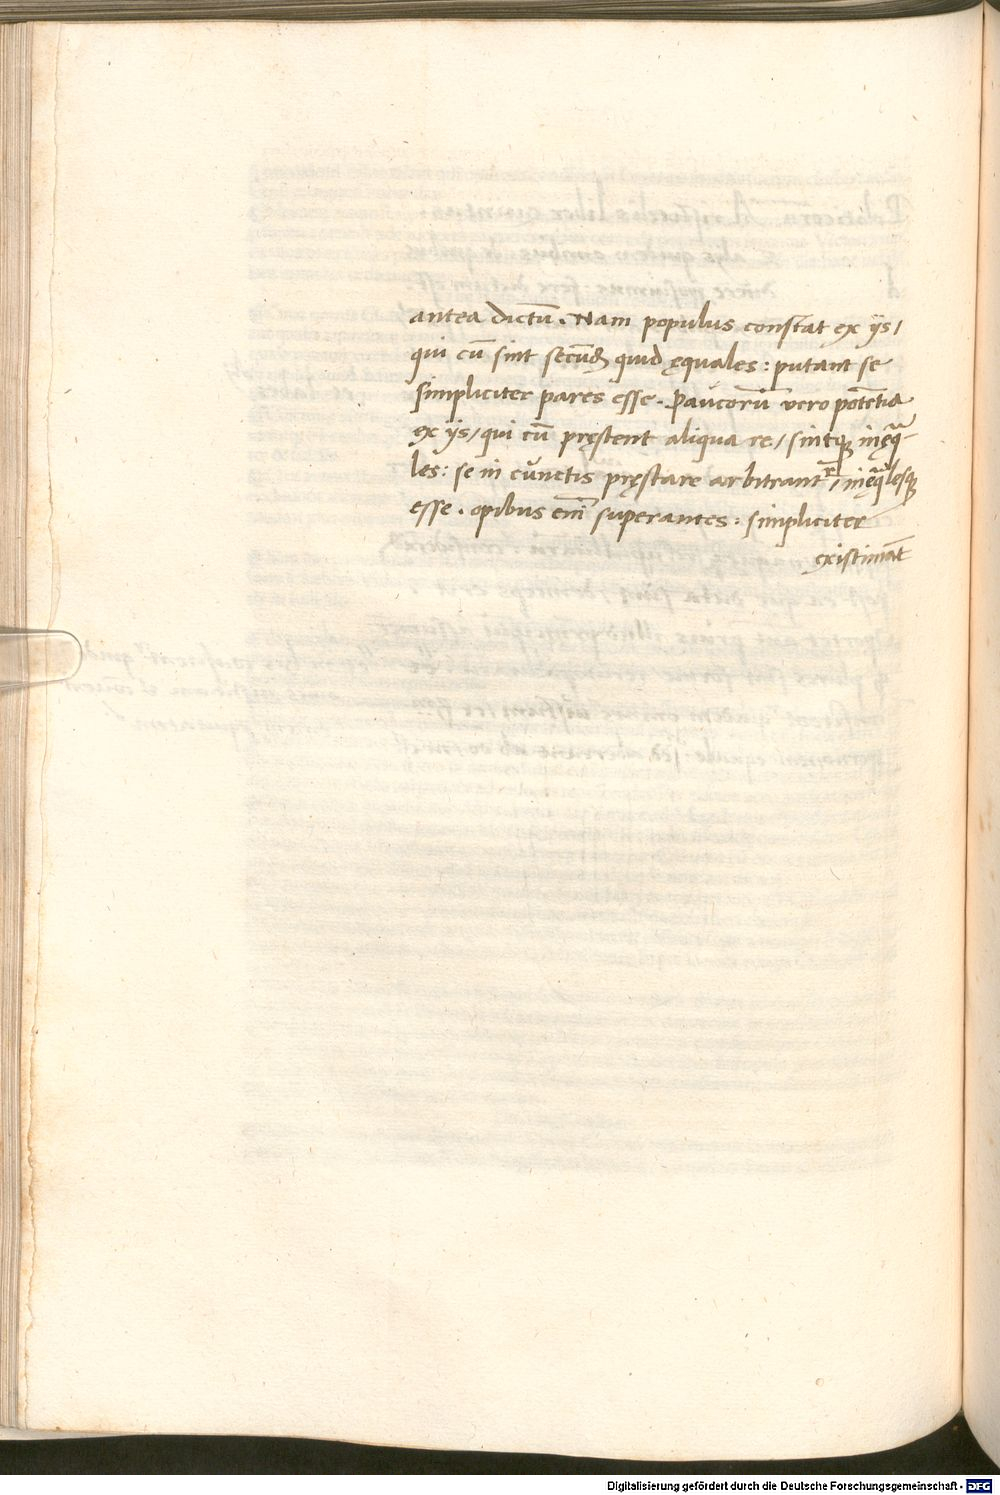 antea dictū. Nam populus constat ex ijs/
qui cū sint secūdȝ quid ęquales: putant se
simpliciter pares esse. Paucorū vero potētia
ex ijs/ qui cū pręstent aliqua re/ sintqȝ inęq̄-
les: se in cunctis pręstare arbitrantᷣ/ inęq̄lesqȝ
esse. opibus enī superantes: simpliciter
existimāt
Digitalisierung gefördert durch die Deutsche Forschungsgemeinschaft - DFG